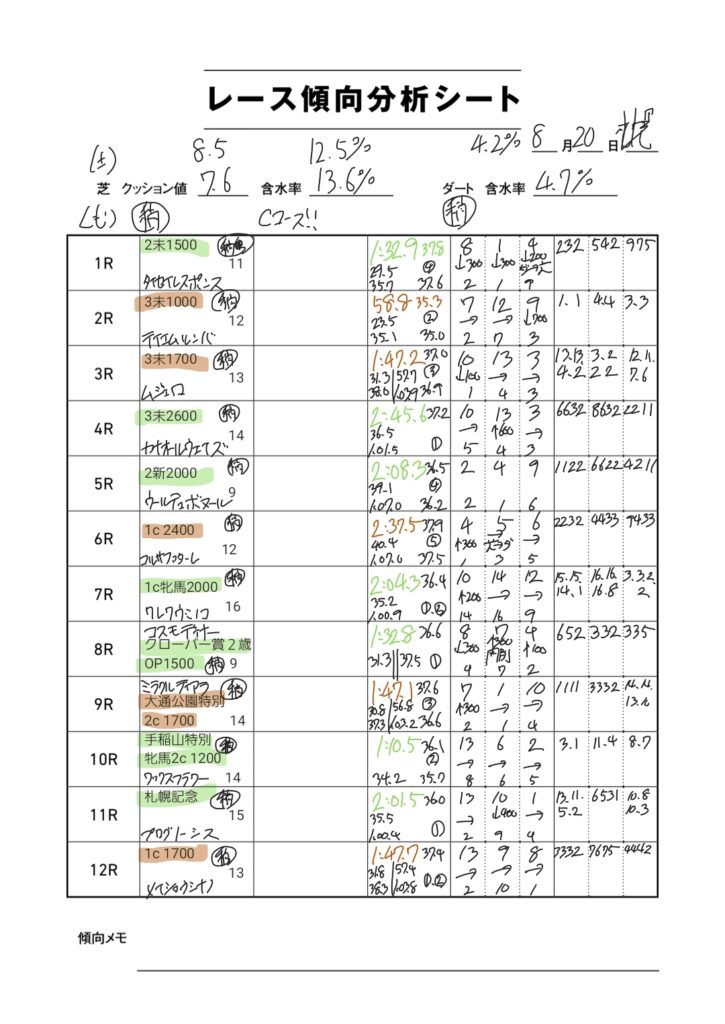 レース傾向分析シート
(土) 8.5 12.5% 4.2% 8月20日 札幌
芝 クッション値 7.6 含水率 13.6% ダート 含水率 4.7%
稍 Cコース!! 稍
1R
2未1500 稍
11
タイセイレスポンス
1:32.9 37.8
29.5
35.7 37.6
8 1 4
↓300 ↓300 ↓200
2 1 9
232 542 975
2R
3未1000 稍
12
テイエムルンバ
58.8 35.3
23.5 ②
35.1 35.0
7 12 9
→ → ↓700
2 7 3
1.1 4.4 3.3
3R
3未1700 稍
13
ムジェロ
1:47.2 37.0
31.3 57.7
38.0 36.9
10 13 3
↓100 → →
1 4 3
13.13. 3.2 12.11.
4.2 2.2 7.6
4R
3未2600 稍
14
2:45.6 37.2
36.5
1.01.5 ①
10 13 3
→ ↑600 →
5 4 3
6632 8632 2211
5R
2新2000 稍
9
2:08.3 36.5
39.1
1.07.0 36.2
2 4 9
2 1 6
1122 6622 4211
6R
1c 2400 稍
12
2:37.5 37.9
40.4 ⑤
1.07.0 37.5
4 5 6
↑300 →
1 3 5
2232 4433 9433
7R
1c牝馬2000 稍
16
ワレワウミノコ
2:04.3 36.4
35.2
1.00.9 ①.②
10 14 12
↑200 → →
14 16 9
15.15. 16.16. 3.3.2.
14.1 16.8 2
8R
コスモディナー
クローバー賞2歳
OP1500 稍 9
1:32.8 36.6
31.3 37.5 ①
8 7 4
↓300 ↑300 ↑100
内側
4 7 2
652 332 335
9R
ミラクルティアラ 稍
大通公園特別
2c 1700 14
1:47.1 37.6
30.8 56.8 ③
37.3 1.03.2 36.6
7 1 10
↑300 → →
2 1 4
1111 3332 14.14.
10R
手稲山特別 稍
牝馬2c 1200
ワックスフラワー 14
1:10.5 36.1
②
34.2 35.7
13 6 2
→ → →
8 6 5
3.1 11.4 8.7
11R
札幌記念 稍
15
プログノーシス
2:01.5 36.0
35.5
1.00.4 ①
13 10 1
→ ↓400 →
2 9 4
13.11. 6531 10.8
5.2 10.3
12R
1c 1700 稍
13
メイショウシナノ
1:47.7 37.4
31.8 57.4
38.3 1.03.8 ①.②
13 9 8
→ → →
2 10 1
3332 7675 4442
傾向メモ